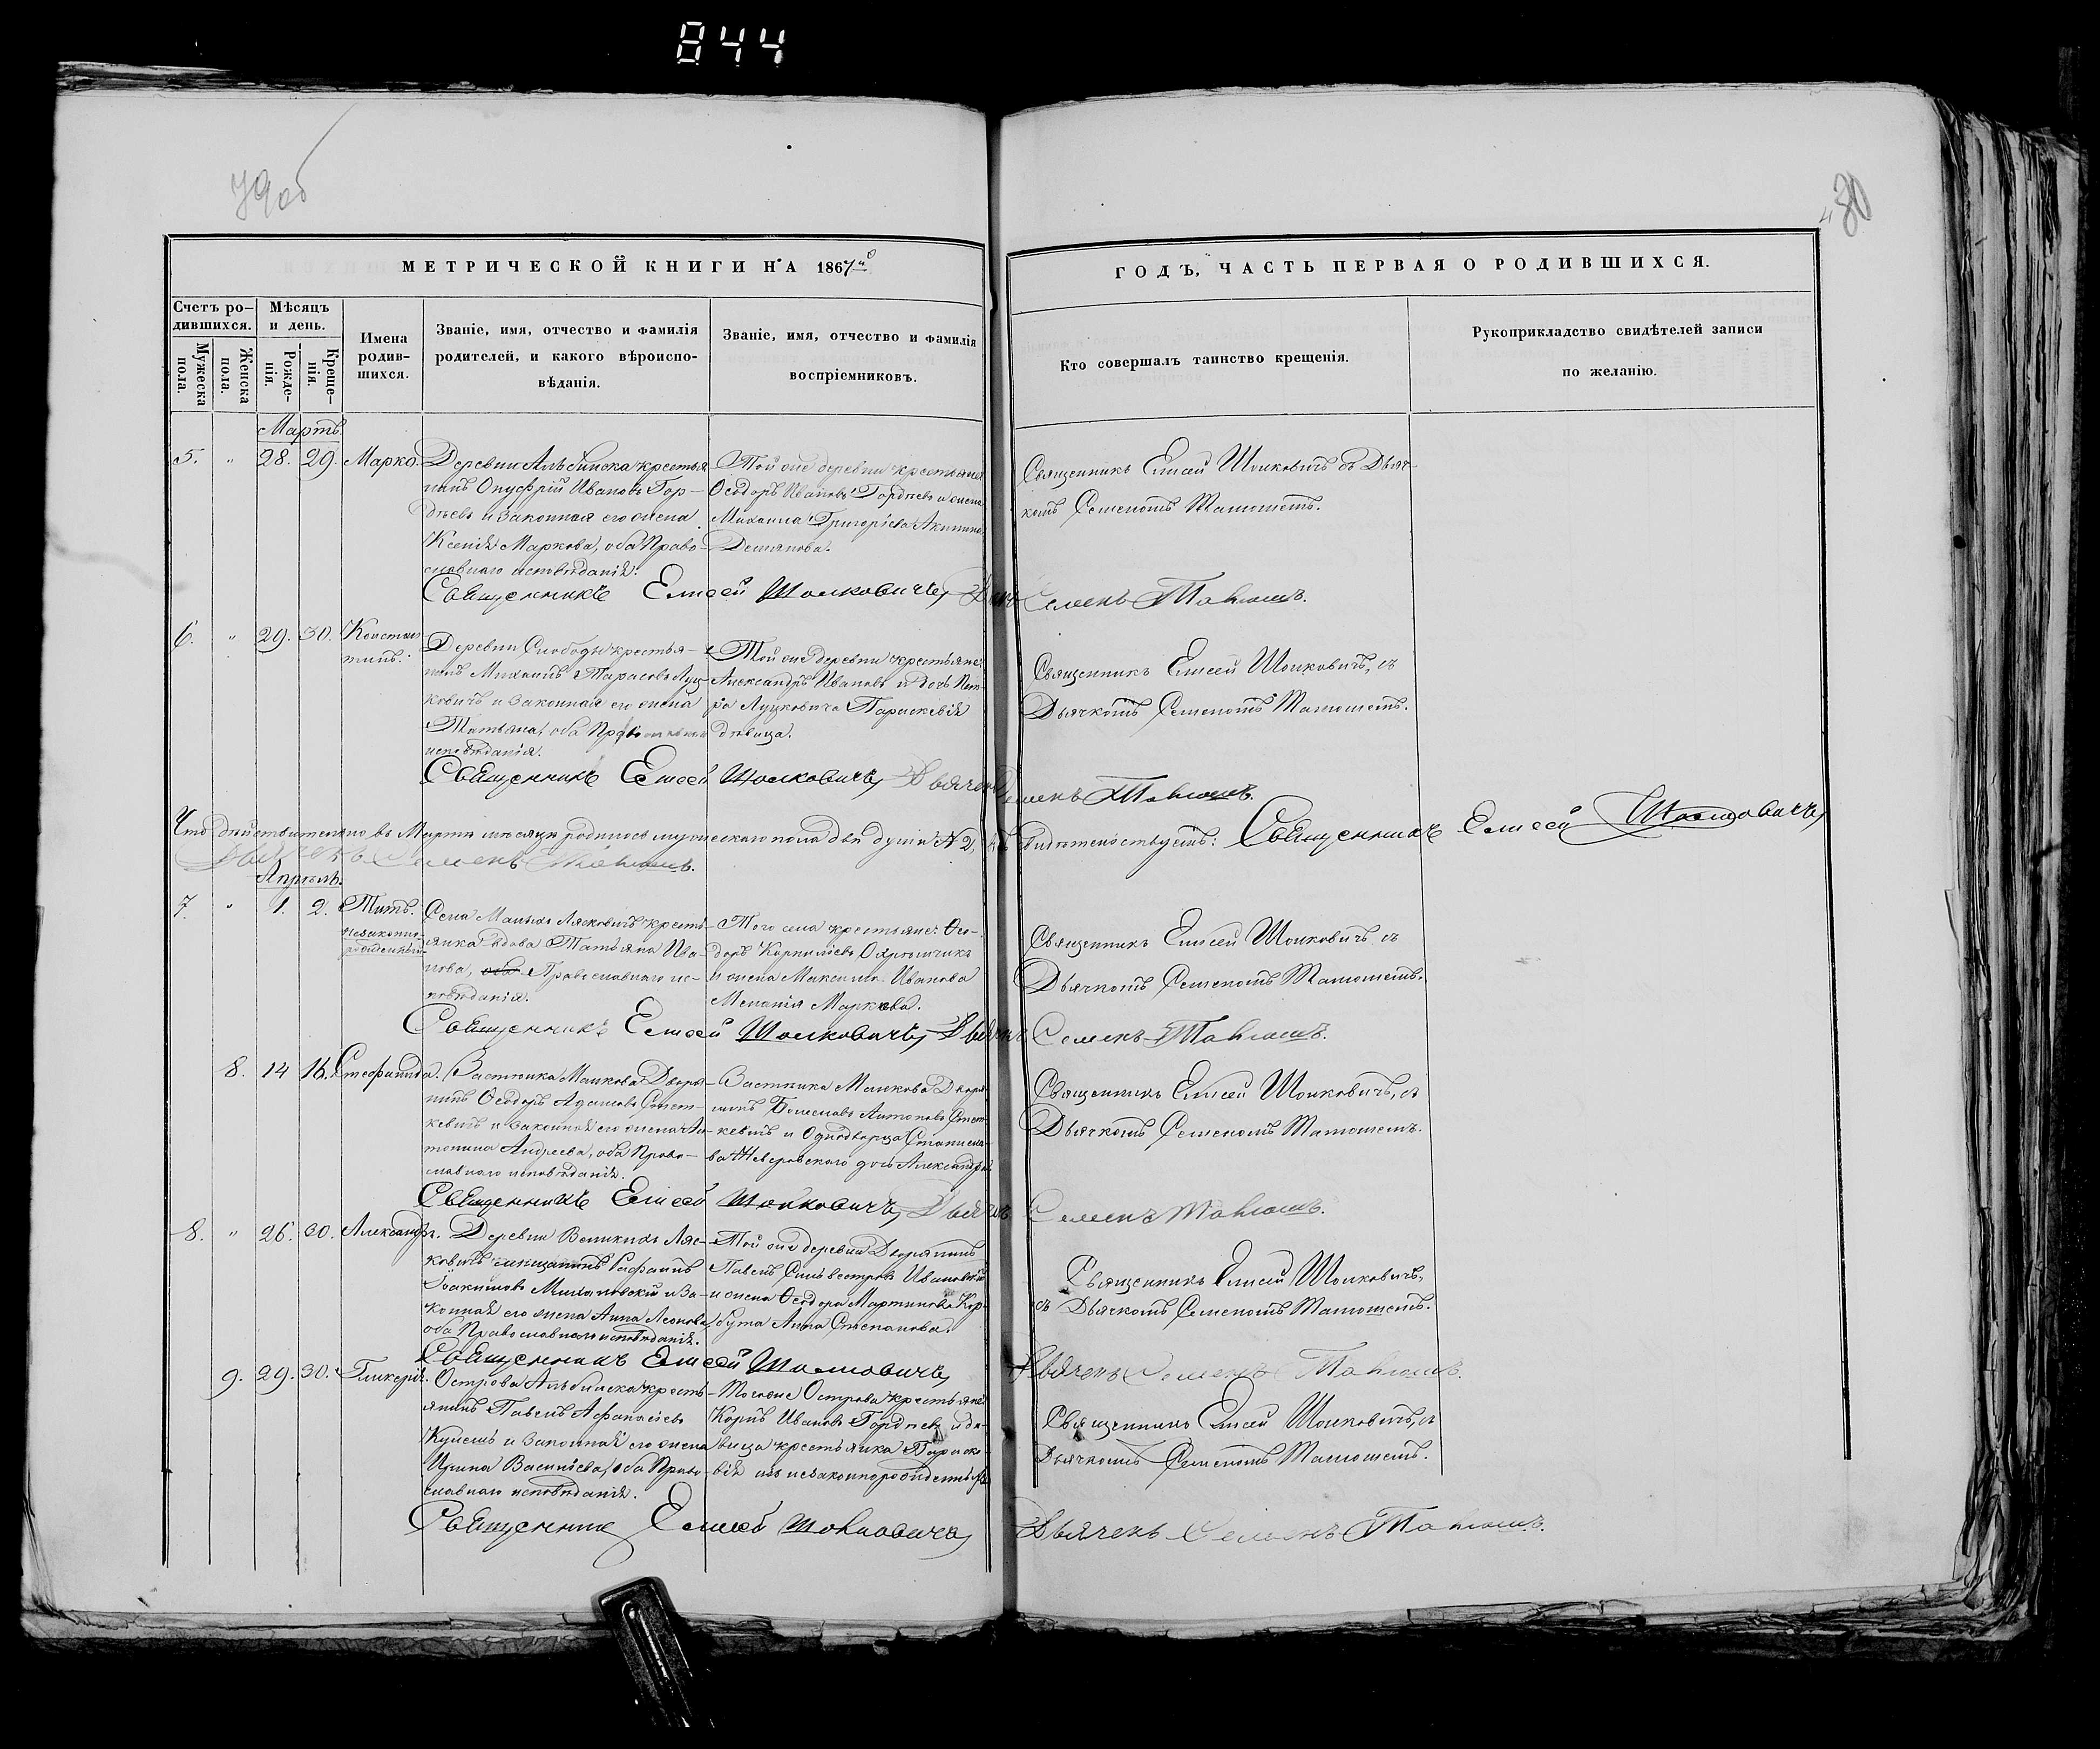 844
79 об
80
МЕТРИЧЕСКОЙ КНИГИ НА 1867й
Счетъ ро-
дившихся.
Мужеска
пола.
Женска
пола.
Мѣсяцъ
и день.
Рожде-
нія.
Креще-
нія.
Имена
родив-
шихся.
Званіе, имя, отчество и фамилія
родителей, и какого вѣроиспо-
вѣданія.
Званіе, имя, отчество и фамилія
воспріемниковъ.
ГОДЪ, ЧАСТЬ ПЕРВАЯ О РОДИВШИХСЯ.
Кто совершалъ таинство крещенія.
Рукоприкладство свидѣтелей записи
по желанію.
Мартъ.
5. " 28. 29. Марко.
Деревни Альбинска крестья-
нинъ Онуфрій Ивановъ Гор-
дѣевъ и законная его жена
Ксенія Маркова, оба Право-
славнаго исповѣданія.
Той же деревни крестьяне
Ѳеодоръ Ивановъ Гордѣевъ и жена
Михаила Григоріева Акилина
Демянова.
Священникъ Елисей Шолковичъ съ Дьяч-
комъ Семеномъ Матюшемъ.
Священникъ Елисей Шолковичъ, Дьяч. Семенъ Матюшъ.
6. " 29. 30. Констан-
тинъ.
Деревни Слободы крестья-
нинъ Михаилъ Тарасовъ Луц-
ковичъ и законная его жена
Татьяна, оба Православнаго
исповѣданія.
Той же деревни крестьяне:
Александръ Ивановъ и дочь Пет-
ра Луцковича Параскевія
дѣвица.
Священникъ Елисей Шолковичъ, съ
Дьячкомъ Семеномъ Матюшемъ.
Священникъ Елисей Шолковичъ, Дьячекъ Семенъ Матюшъ.
Что дѣйствительно въ Мартѣ мѣсяцѣ родилось мужескаго пола двѣ души № 2, въ томъ свидѣтельствуетъ: Священникъ Елисей Шолковичъ,
Дьячекъ Семенъ Матюшъ.
Апрѣль.
7. " 1. 2. Титъ.
незаконно-
рожденный
Села Малыхъ Лясковичъ кресть-
янка вдова Татьяна Ива-
нова, Православнаго ис-
повѣданія.
Того села крестьяне: Ѳео-
доръ Корниліевъ
и жена Максима Иванова
Меланія Маркова.
Священникъ Елисей Шолковичъ съ
Дьячкомъ Семеномъ Матюшемъ.
Священникъ Елисей Шолковичъ, Дьячекъ Семенъ Матюшъ.
8. 14 16. Стефанида.
Застѣнка Малкова Дворя-
нинъ Ѳеодоръ Адамовъ Стет-
кевичъ и законная его жена Ан-
тонина Андреева, оба Право-
славнаго исповѣданія.
Застѣнка Малкова Дворя-
нинъ Болеславъ Антоновъ Стет-
кевичъ и Однодворца Станисла-
ва Неверовскаго дочь Александра.
Священникъ Елисей Шолковичъ, съ
Дьячкомъ Семеномъ Матюшемъ.
Священникъ Елисей Шолковичъ, Дьячекъ Семенъ Матюшъ.
8. " 26. 30. Александръ.
Деревни Великихъ Ляс-
ковичъ мѣщанинъ Рафаилъ
Іоакимовъ Милановскій и за-
конная его жена Анна Леонова,
оба Православнаго исповѣданія.
Той же деревни Дворянинъ
Павелъ Сильвестровъ Ивановскій
и жена Ѳеодора Мартинова Кор-
бута Анна Степанова.
Священникъ Елисей Шолковичъ,
съ Дьячкомъ Семеномъ Матюшемъ.
Священникъ Елисей Шолковичъ, Дьячекъ Семенъ Матюшъ.
9. 29. 30. Гликерія.
Острова Альбинска кресть-
янинъ Павелъ Афанасіевъ
и законная его жена
Ирина Василіева, оба Право-
славнаго исповѣданія.
Того же Острова крестьяне:
Карпъ Ивановъ Гордѣевъ и дѣ-
вица крестьянка Параске-
вія изъ незаконнорожденныхъ
Священникъ Елисей Шолковичъ, съ
Дьячкомъ Семеномъ Матюшемъ.
Священникъ Елисей Шолковичъ, Дьячекъ Семенъ Матюшъ.